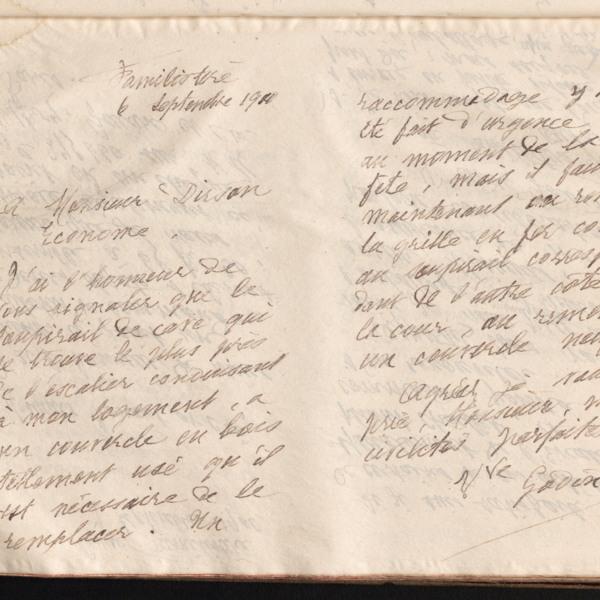 Familistère
6 Septembre 1900
A Monsieur Dirson
Econome.
J'ai l'honneur de
vous signaler que le
soupirail de cave qui
se trouve le plus près
de l'escalier conduisant
à mon logement, a
un couvercle en bois
tellement usé qu'il
est nécessaire de le
remplacer. Un
raccommodage y a
été fait d'urgence
au moment de la
fête, mais il faut
maintenant ou
la grille en fer
au soupirail
dant de l'autre côté
la cour, ou
un couvercle
Agréez je
prie, Monsieur,
civilités parfaites
Vve Godin